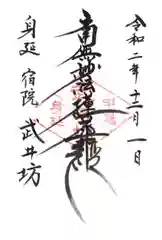 令和二年十二月一日
南無妙法蓮華経
身延 宿院 武井坊